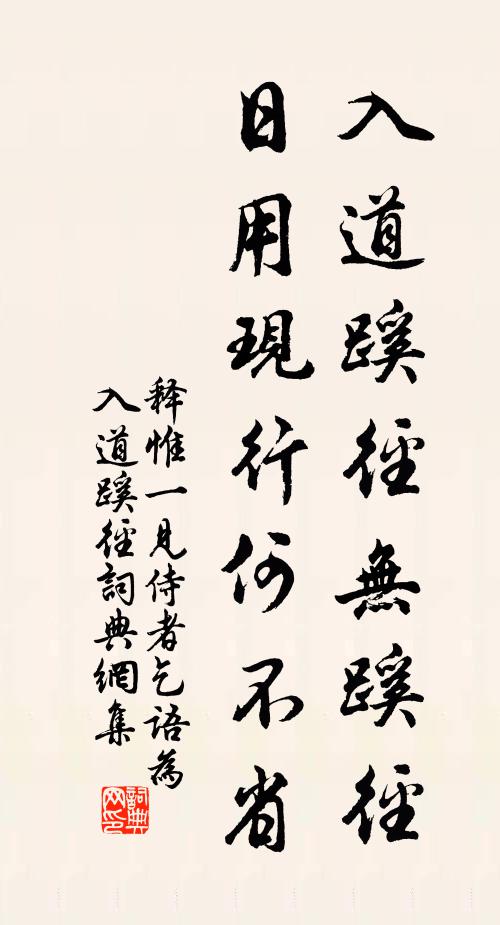 入道蹊徑無蹊徑
日用現行何不省
释惟一見侍者乞語為
入道蹊徑詞典網集
詞典网印